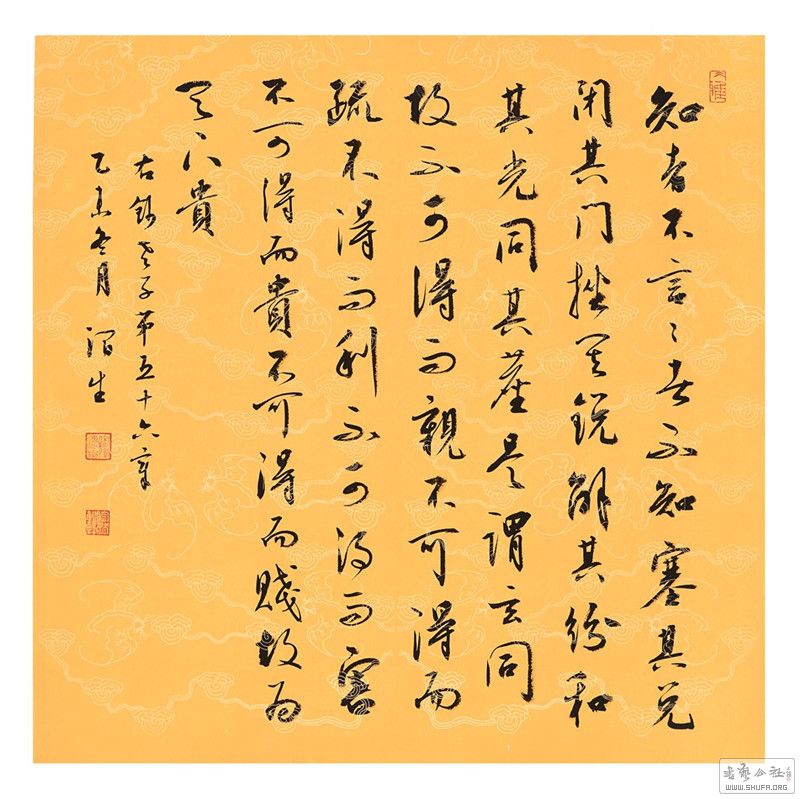 知者不言〻者不知塞其兑
閉其門挫其銳解其紛和
其光同其塵是謂玄同
故不可得而親不可得而
疏不得而利不可得而害
不可得而貴不可得而賤故為
天下貴
右錄老子第五十六章
乙未冬月
書藝公社
WWW.SHUFA.ORG